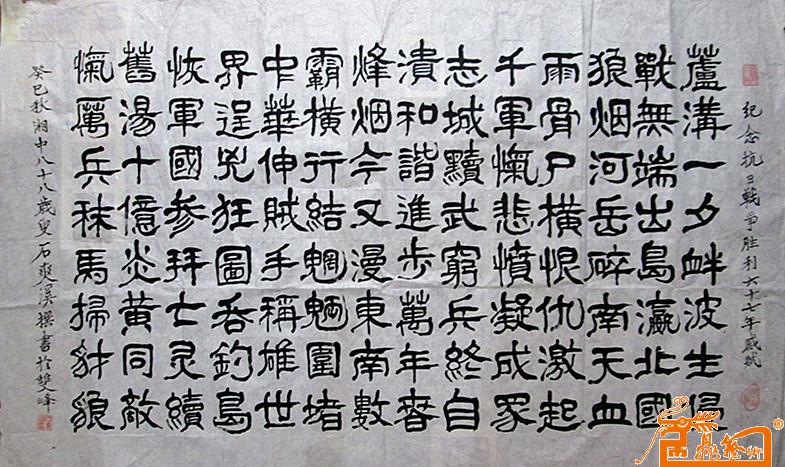 纪念抗日戰爭胜利六十七年感赋
蘆溝一夕衅波生
戰無端出島瀛北國
狼烟河岳碎南天血
雨骨尸橫恨仇激起
千軍愾悲憤凝成眾
志城黷武窮兵終自
潰和諧進步萬年春
烽烟今又漫東南數
霸橫行結魍魎圍堵
中華伸賊手稱雄世
界逞兇狂圖吞釣島
恢軍國參拜亡灵續
舊湯十億炎黃同敵
愾厲兵秣馬掃豺狼
癸巳秋湘中八十八歲叟石爽溪撰書於雙峰